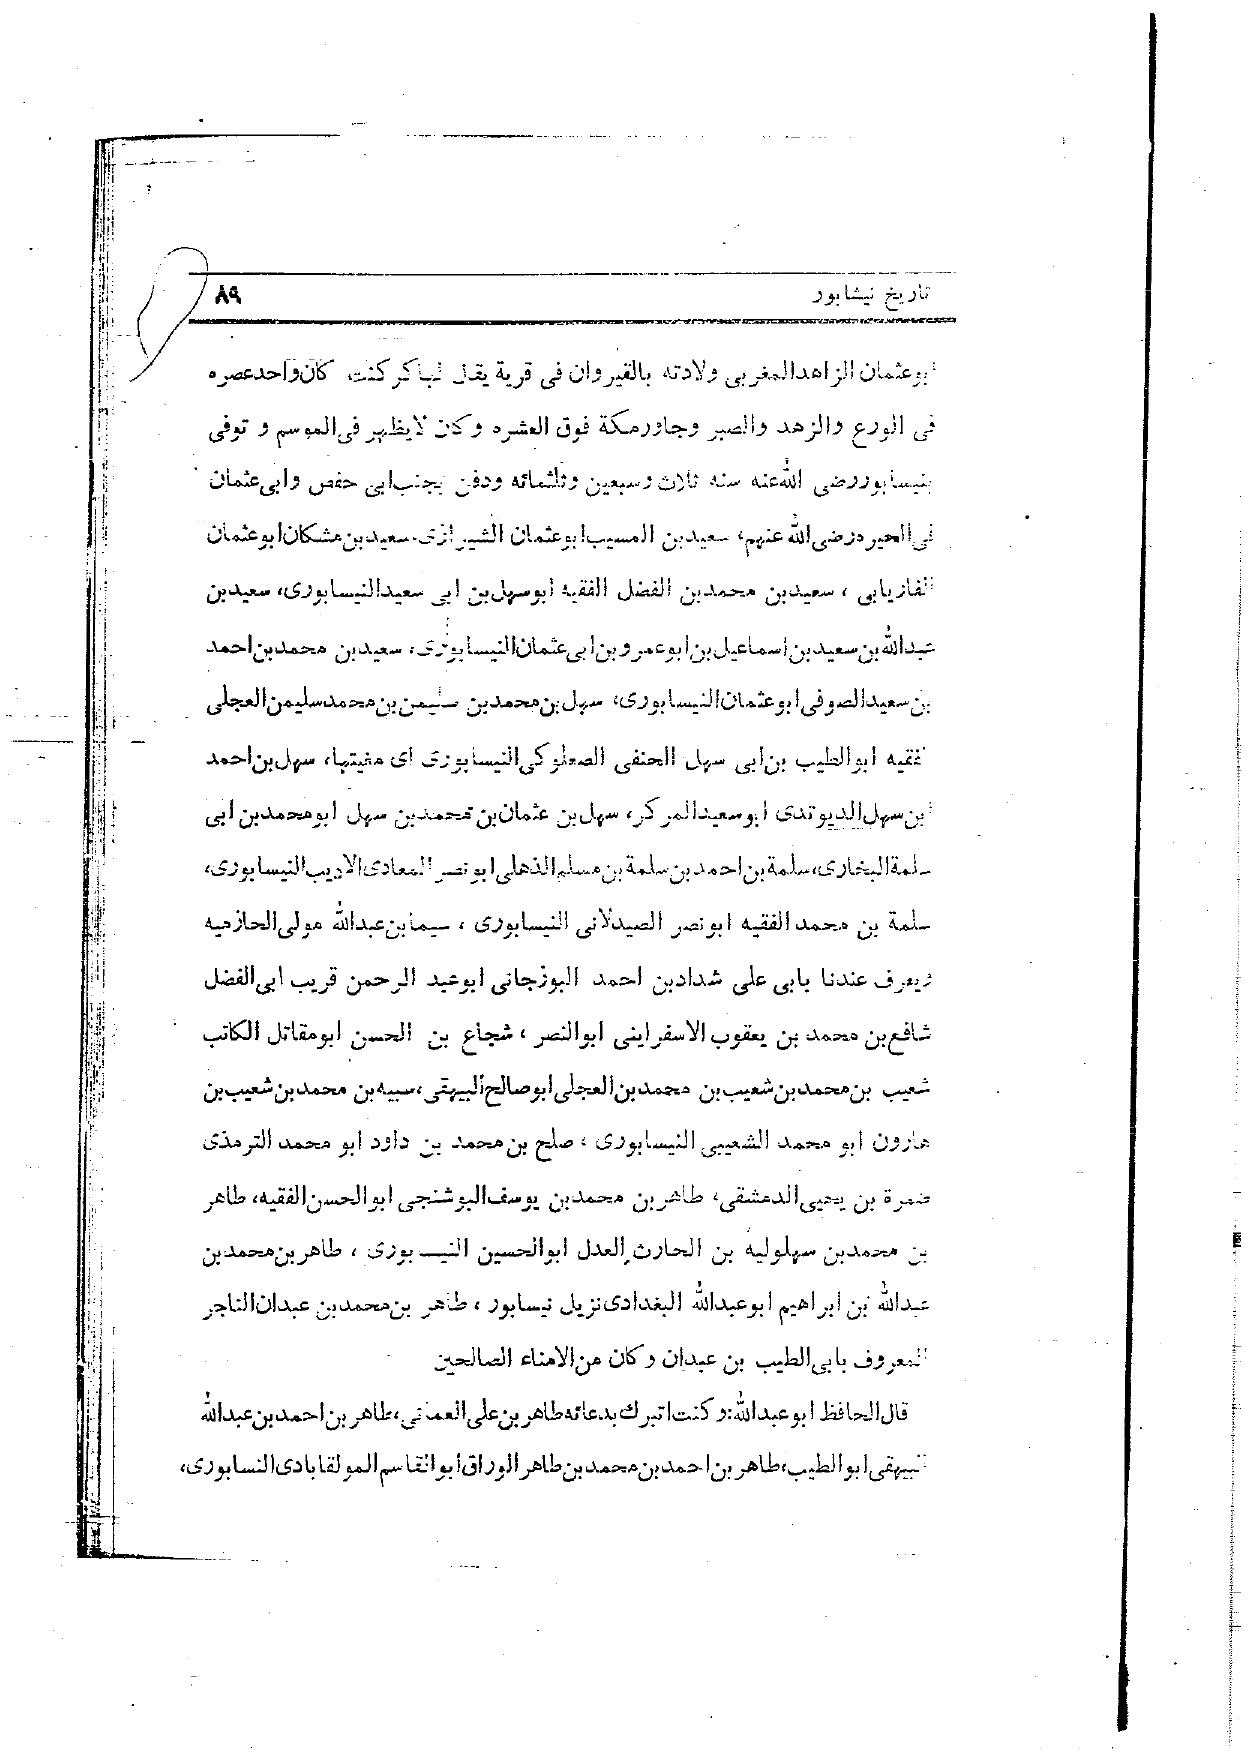 تاریخ نیشابور ٨٩
ابوعثمان الزاهدالمغربی ولادته بالقیروان فی قریة یقل لهاکرکنت کان‌واحدعصره
فی الورع والزهد والصبر وجاورمکة فوق العشره وکان لایظهر فی‌الموسم و توفی
بنیسابوررضی الله‌عنه سنه ثلاث وسبعین وثلثمائه ودفن بجنب‌ابی حفص وابی‌عثمان
فی‌الحیره‌رضی‌الله عنهم، سعیدبن المسیب‌ابوعثمان الشیرازی، سعیدبن‌مشکان‌ابوعثمان
الفاریابی ، سعیدبن محمدبن الفضل الفقیه ابوسهل‌بن ابی سعیدالنیسابوری، سعیدبن
عبدالله‌بن‌سعیدبن‌اسماعیل‌بن‌ابوعمروبن‌ابی‌عثمان‌النیسابوری، سعیدبن محمدبن‌احمد
بن‌سعیدالصوفی‌ابوعثمان‌النیسابوری، سهل‌بن‌محمدبن سلیمن‌بن‌محمدسلیمن‌العجلی
الفقیه ابوالطیب بن‌ابی سهل الحنفی الصعلوکی‌النیسابوری ای مفیتها، سهل‌بن‌احمد
ابن‌سهل‌الدیوتدی ابوسعیدالمرکر، سهل‌بن عثمان‌بن محمدبن سهل ابومحمدبن ابی
سلمةالبخاری،سلمةبن‌احمدبن‌سلمةبن‌مسلم‌الذهلی‌ابونصر المعادی‌الادیب‌النیسابوری،
سلمة بن محمد الفقیه ابونصر الصیدلانی النیسابوری ، سیمابن‌عبدالله مولی‌الحازمیه
ویعرف عندنا بابی علی شدادبن احمد البوزجانی ابوعبد الرحمن قریب ابی‌الفضل
شافع‌بن محمد بن یعقوب الاسفراینی ابوالنصر ، شجاع بن الحسن ابومقاتل الکاتب
شعیب بن‌محمدبن‌شعیب‌بن محمدبن‌العجلی‌ابوصالح‌البیهقی،سبیه‌بن محمدبن‌شعیب‌بن
هارون ابو محمد الشعیبی النیسابوری ، صلح بن‌محمد بن داود ابو محمد الترمذی
ضمرة بن یحیی‌الدمشقی، طاهربن محمدبن یوسف‌البوشنجی ابوالحسن‌الفقیه، طاهر
بن محمدبن سهلولیه بن الحارث العدل ابوالحسین النیسابوری ، طاهربن‌محمدبن
عبدالله بن ابراهیم ابوعبدالله البغدادی‌نزیل نیسابور ، طاهر بن‌محمدبن عبدان‌التاجر
المعروف بابی‌الطیب بن عبدان وکان من‌الامناء الصالحین
قال‌الحافظ ابوعبدالله:وکنت‌اتبرك‌بدعائه‌طاهربن‌علی‌العمانی،طاهربن‌احمدبن‌عبدالله
البیهقی‌ابوالطیب،طاهربن‌احمدبن‌محمدبن‌طاهرالوراق‌ابوالقاسم‌المولقابادی‌النسابوری،